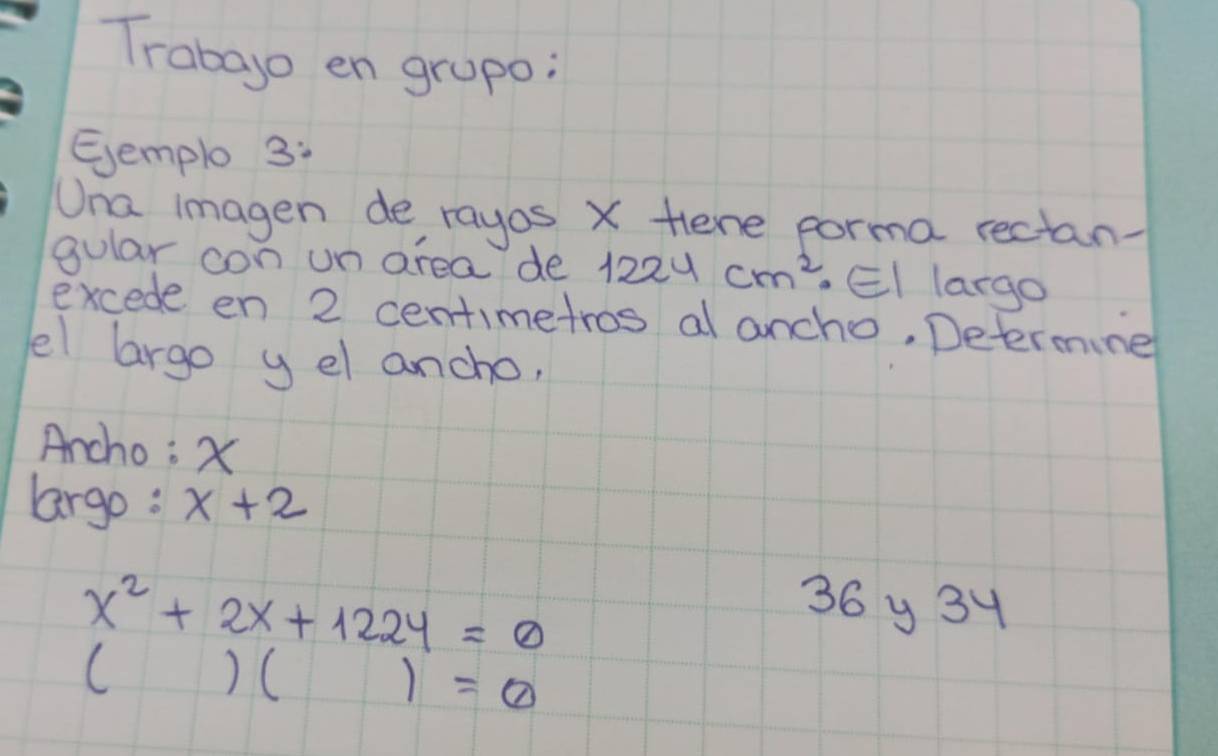 Trabajo en grupo:
Ejemplo 3:
Una imagen de rayos X tiene forma rectan-
gular con un área de 1224 cm². El largo
excede en 2 centimetros al ancho. Determine
el largo y el ancho.
Ancho: x
largo: x + 2
x² + 2x + 1224 = 0
36 y 34
( ) ( ) = 0